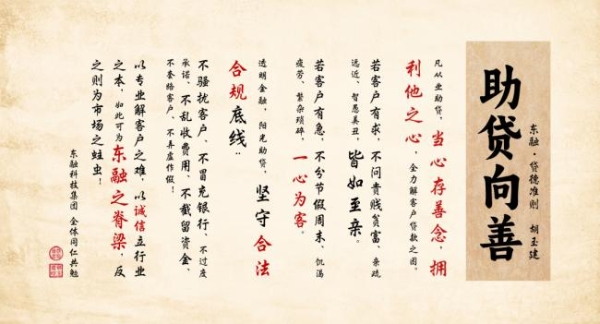 东融·贷德准则 胡玉建
助贷向善
凡从业助贷，当心存善念，拥
利他之心，全力解客户贷款之困。
若客户有求，不问贵贱贫富、亲疏
远近、智愚美丑，皆如至亲。
若客户有急，不分节假周末、饥渴
疲劳、繁杂琐碎，一心为客。
透明金融，阳光助贷，坚守合法
合规底线：
不骚扰客户、不冒充银行、不过度
承诺、不乱收费用、不截留资金、
不套路客户、不弄虚作假！
以专业解客户之难，以诚信立行业
之本，如此可为东融之脊梁，反
之则为市场之蛀虫！
东融科技集团 全体同仁共勉